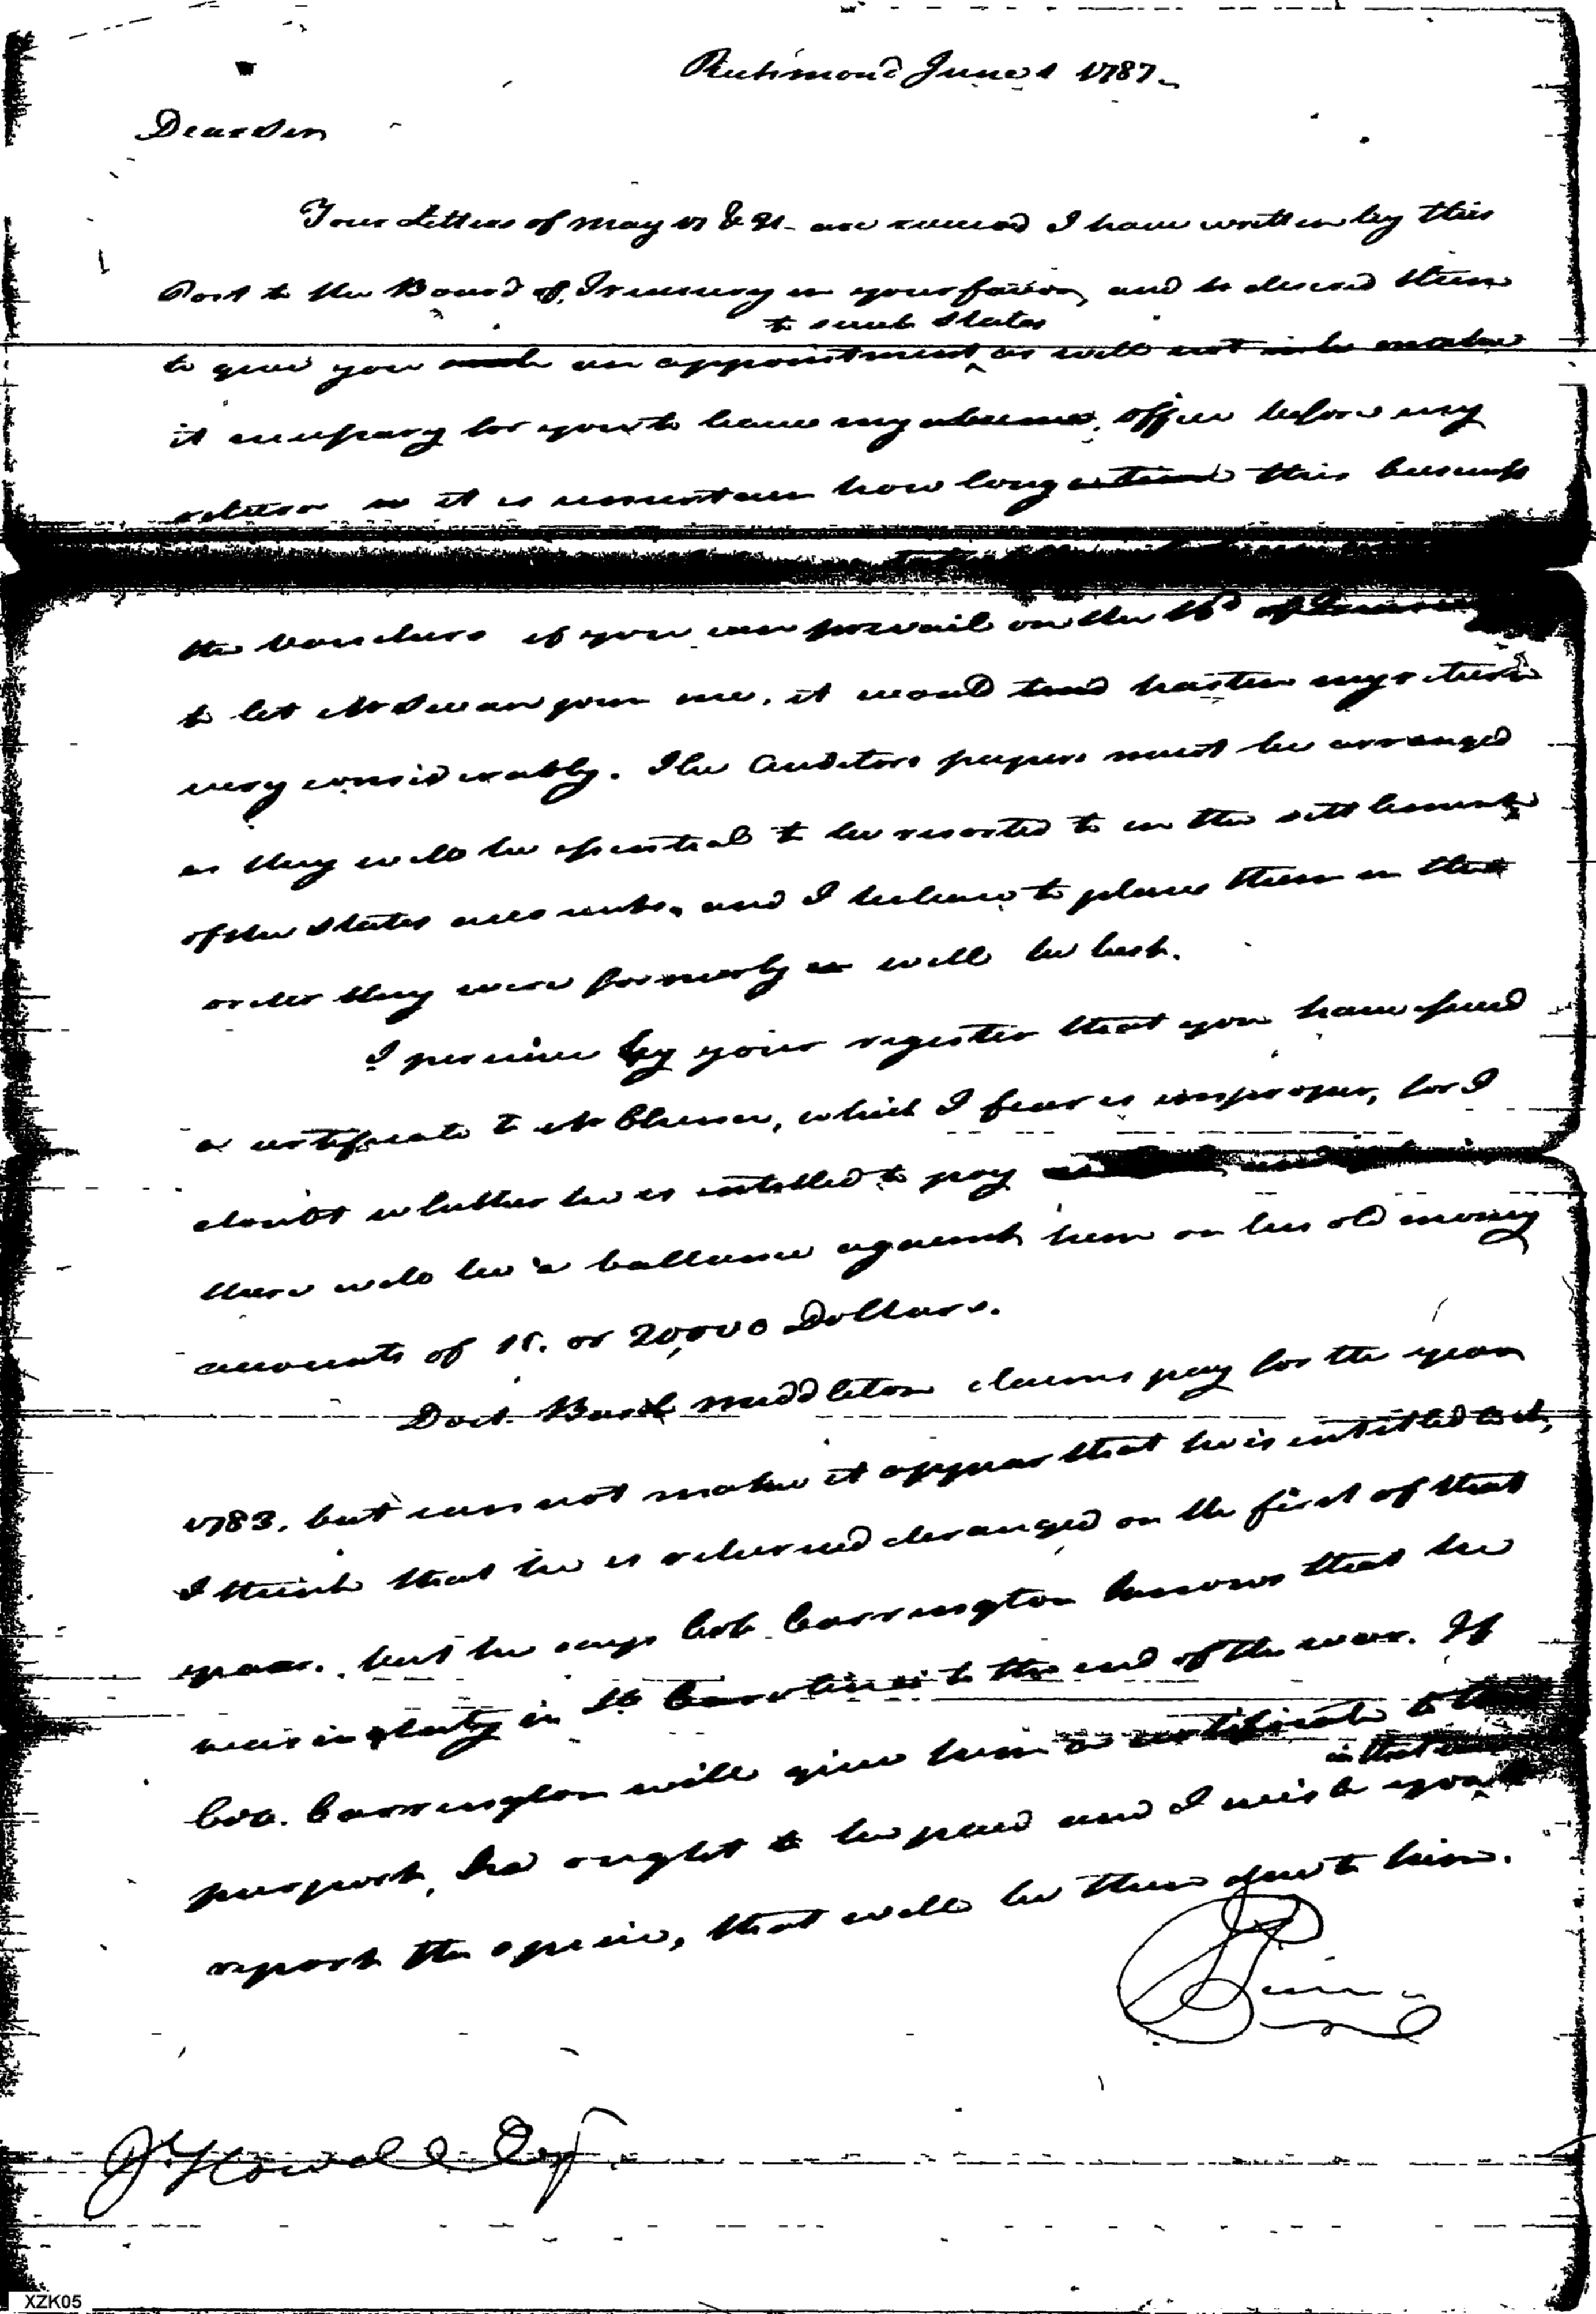 Richmond June 1 1787.
Dear Sir
Your Letters of May 17 & 21 are received I have written by this
Post to the Board of Treasury in your favor, and desired them
to such States
to give you such an appointment as will not make
it necessary for you to leave my office before my
return as it is uncertain how long this business
the vouchers if you can prevail on the Bd of Treasury
to let Mr Swan join me, it would tend hasten my return
very considerably. The Auditors papers must be arranged
as they will be essential to be resorted to in the settlement
of the States accounts, and I believe to place them in the
order they were formerly in will be best.
I perceive by your register that you have issued
a certificate to Mr , which I fear is improper, for I
doubt whether he is entitled to pay
there will be a ballance against him on his old money
accounts of 15. or 20,000 Dollars.
Doct. Basil Middleton claims pay for the year
1783, but can not make it appear that he is entitled to it,
I think that he is returned deranged on the first of that
year. but he says Col. Carrington knows that he
was in duty in So Carolina to the end of the war. If
Col. Carrington will give him a certificate to this
in that case
purport, he ought to be paid and I wish you
report the specie, that will be then due to him.
Pierce
Jo Howell Esqr
XZK05